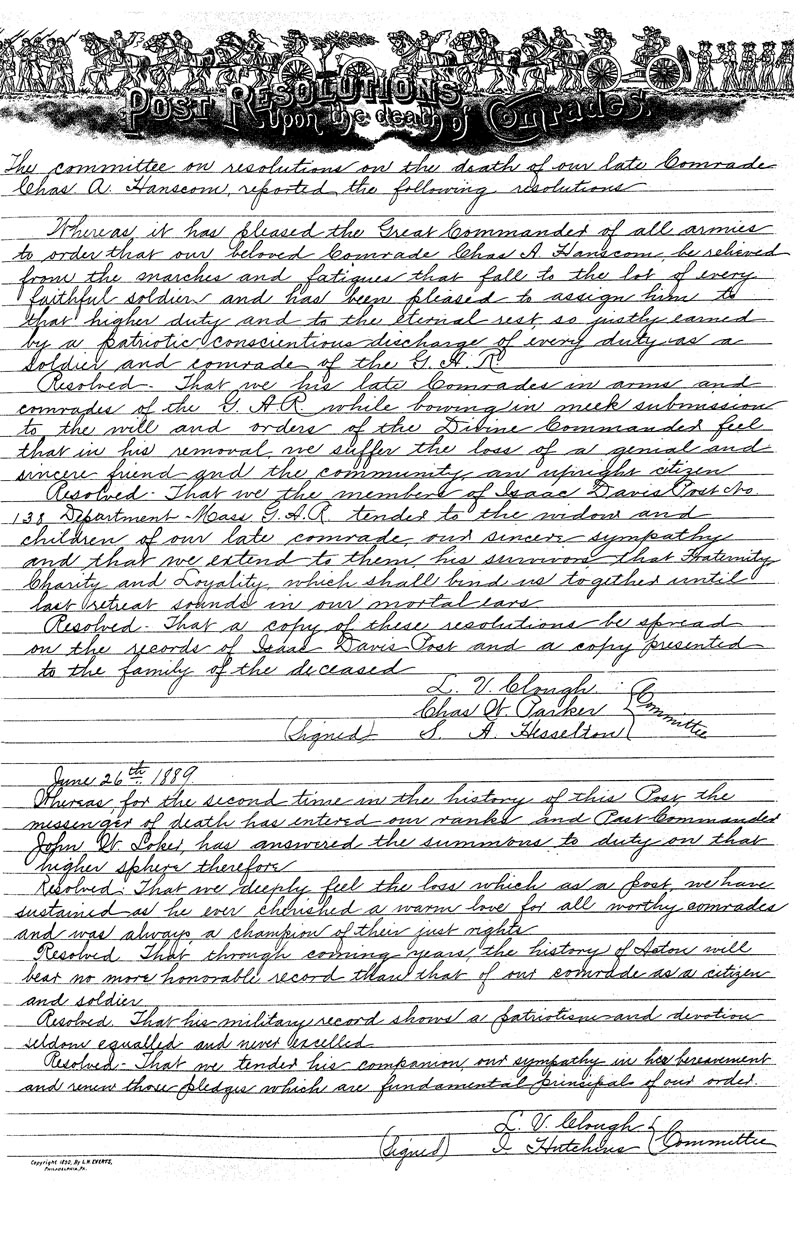 Post Resolutions
Upon the death of Comrades.
The committee on resolutions on the death of our late Comrade
Chas. A. Hanscom, reported the following resolutions
Whereas it has pleased the Great Commander of all armies
to order that our beloved Comrade Chas A. Hanscom, be relieved
from the marches and fatigues that fall to the lot of every
faithful soldier, and has been pleased to assign him to
that higher duty and to the eternal rest, so justly earned
by a patriotic conscientious discharge of every duty as a
soldier and comrade of the G. A. R
Resolved- That we his late Comrades in arms and
comrades of the G. A. R while bowing in meek submission
to the will and orders of the Divine Commander feel
that in his removal, we suffer the loss of a genial and
sincere friend and the community an upright citizen
Resolved- That we the members of Isaac Davis Post No.
138 Department Mass G. A. R. tender to the widow and
children of our late comrade, our sincere sympathy
and that we extend to them, his survivors that Fraternity
Charity and Loyality, which shall bind us together until
last retreat sounds in our mortal ears
Resolved- That a copy of these resolutions be spread
on the records of Isaac Davis Post and a copy presented
to the family of the deceased
L. V. Clough
Chas W. Parker
(Signed) S. A. Hesselton
Committee
June 26th 1889.
Whereas, for the second time in the history of this Post, the
messenger of death has entered our ranks and Past Commander
John W. Loker, has answered the summons to duty on that
higher sphere therefore
Resolved. That we deeply feel the loss which as a post, we have
sustained as he ever cherished a warm love for all worthy comrades
and was always a champion of their just rights
Resolved. That through coming years, the history of Acton will
bear no more honorable record than that of our comrade as a citizen
and soldier
Resolved. That his military record shows a patriotism and devotion
seldom equalled and never excelled
Resolved- That we tender his companion, our sympathy in her bereavement
and renew those pledges which are fundamental principals of our order.
L. V. Clough
(Signed) I. Hutchins
Committee
Copyright 1890, By L.H. EVERTS,
PHILADELPHIA, PA.